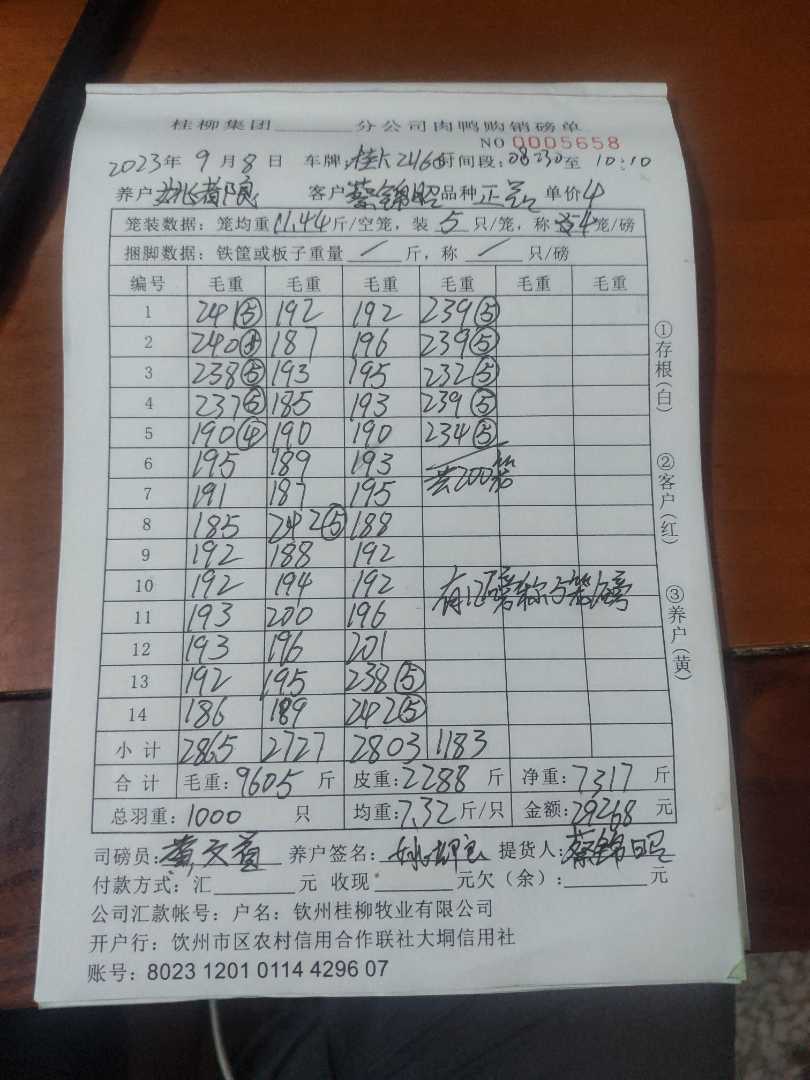 桂柳集团______分公司肉鸭购销磅单
NO 0005658
2023年 9月8日 车牌:桂 时间段: 至 10:10
养户 客户 蔡锦昭 品种 正 单价 4
笼装数据: 笼均重11.44斤/空笼, 装 5 只/笼, 称 4笼/磅
捆脚数据: 铁筐或板子重量 / 斤, 称 / 只/磅
编号 毛重 毛重 毛重 毛重 毛重 毛重
1 241⑤ 192 192 239⑤
2 240⑤ 187 196 239⑤
3 238⑤ 193 195 232⑤
4 237⑤ 185 193 239⑤
5 190④ 190 190 234⑤
6 195 189 193 共200笼
7 191 187 195
8 185 242⑤ 188
9 192 188 192
10 192 194 192 有12磅称5笼/磅
11 193 200 196
12 193 196 201
13 192 195 238⑤
14 186 189 242⑤
小计 2865 2727 2803 1183
合计 毛重:9605 斤 皮重:2288 斤 净重:7317 斤
总羽重:1000 只 均重:7.32斤/只 金额:29268 元
司磅员: 养户签名: 提货人:蔡锦昭
付款方式:汇______元 收现______元欠(余):______元
公司汇款帐号: 户名: 钦州桂柳牧业有限公司
开户行: 饮州市区农村信用合作联社大垌信用社
账号: 8023 1201 0114 4296 07
①存根(白)
②客户(红)
③养户(黄)